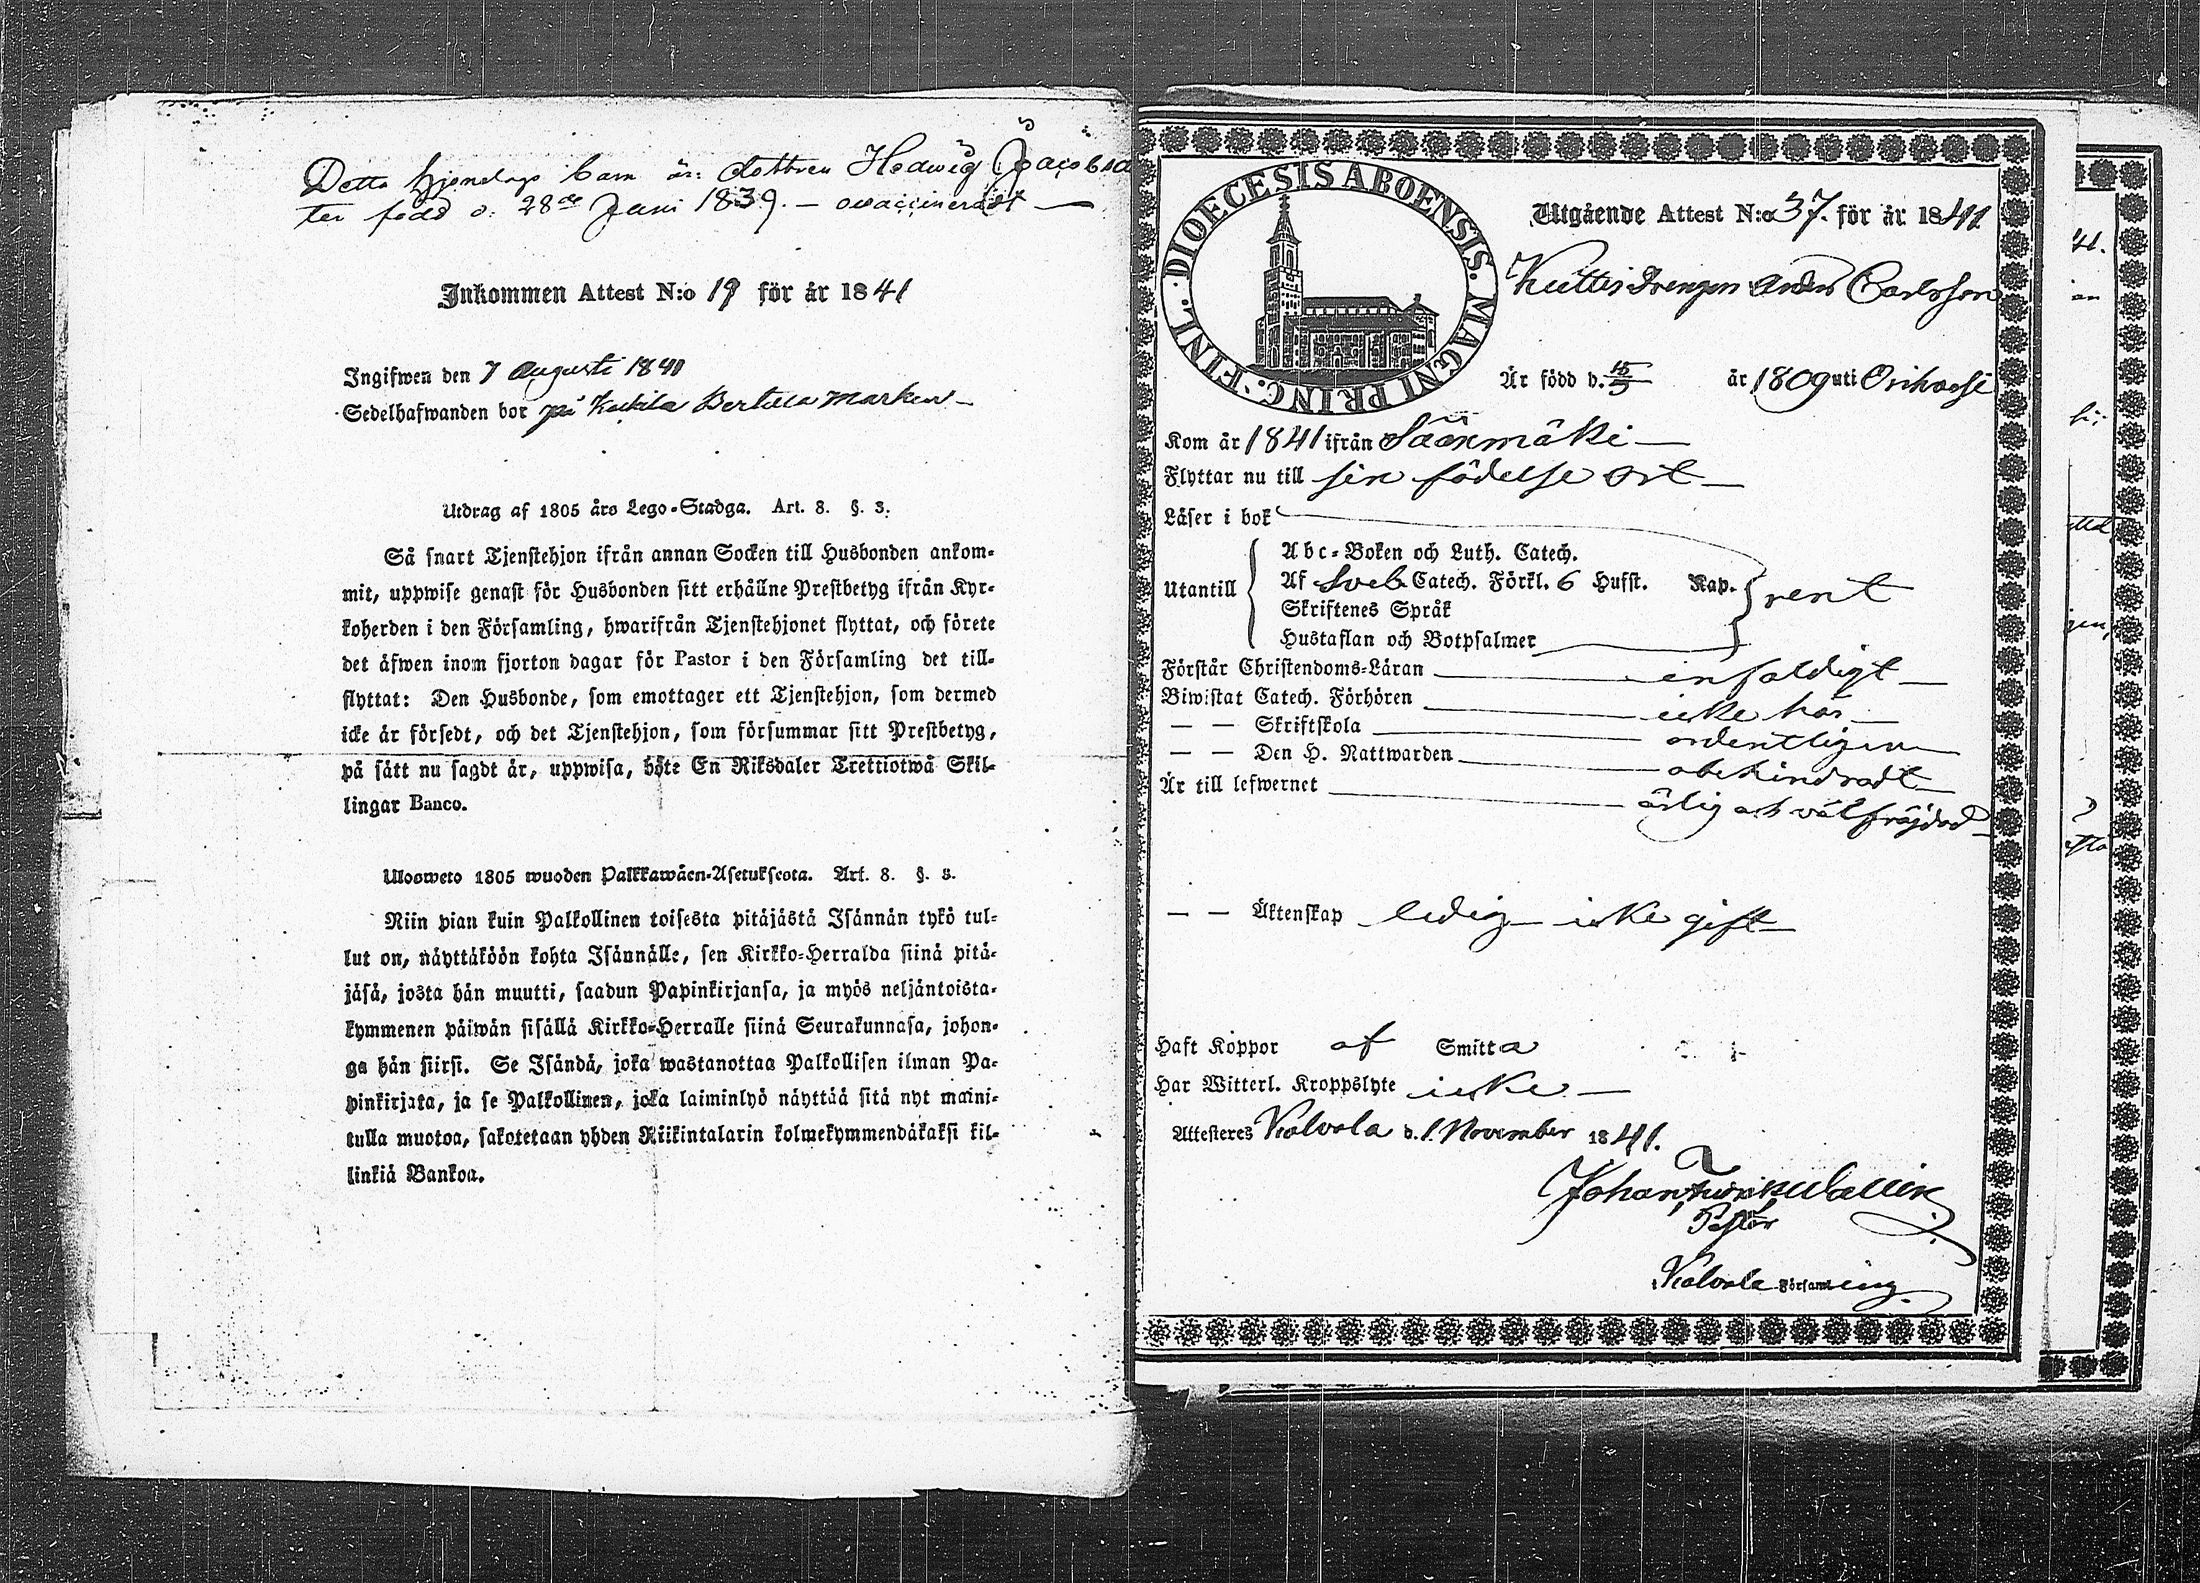 Detta hjonelags barn är: dottren Hedwig Jacobsd
ter född d. 28de Juni 1839. — ovaccineradt —
Inkommen Attest N:o 19 för år 1841
Ingifwen den 7 Augusti 1841
Sedelhafwanden bor på Kaikila Bertula marken —
Utdrag af 1805 års Lego-Stadga. Art. 8. §. 3.
Så snart Tjenstehjon ifrån annan Socken till Husbonden ankom-
mit, uppwise genast för Husbonden sitt erhållne Prestbetyg ifrån Kyr-
koherden i den Församling, hwarifrån Tjenstehjonet flyttat, och förete
det äfwen inom fjorton dagar för Pastor i den Församling det till-
flyttat: Den Husbonde, som emottager ett Tjenstehjon, som dermed
icke är försedt, och det Tjenstehjon, som försummar sitt Prestbetyg,
på sätt nu sagdt är, uppwisa, böte En Riksdaler Trettiotwå Skil-
lingar Banco.
Uloosweto 1805 wuoden Palkkawäen-Asetuksesta. Art. 8. §. 3.
Niin pian kuin Palkollinen toisesta pitäjästä Isännän tykö tul-
lut on, näyttäköön kohta Isännälle, sen Kirkko-Herralda siinä pitä-
jäsä, josta hän muutti, saadun Papinkirjansa, ja myös neljäntoista-
kymmenen päiwän sisällä Kirkko-Herralle siinä Seurakunnasa, johon-
ga hän siirsi. Se Isändä, joka wastanottaa Palkollisen ilman Pa-
pinkirjata, ja se Palkollinen, joka laiminlyö näyttää sitä nyt maini-
tulla muotoa, sakotetaan yhden Riikintalarin kolmekymmendäkaksi kil-
linkiä Bankoa.
DIOECESIS ABOENSIS. MAGNI PRINC. FINL.
Utgående Attest N:o 37. för år 1841
drengen Anders Carlsson
Är född d. 15/5 år 1809 uti Orihvesi
Kom år 1841 ifrån Sääxmäki —
Flyttar nu till sin födelse ort —
Läser i bok
Utantill
Abc-Boken och Luth. Catech.
Af Sveb Catech. Förkl. 6 Hufst. Kap. rent
Skriftenes Språk
Hustaflan och Botpsalmer
Förstår Christendoms-Läran enfaldigt —
Biwistat Catech. Förhören icke här —
— — Skriftskola ordentligen
— — Den H. Nattwarden obehindradt —
Är till lefwernet ärlig och välfräjdad —
— — Äktenskap ledig — icke gift —
Haft Koppor af Smitta
Har Witterl. Kroppslyte icke —
Attesteres Kalvola d. 1. November 1841.
Johan
Pastor
i Kalvola Församling.